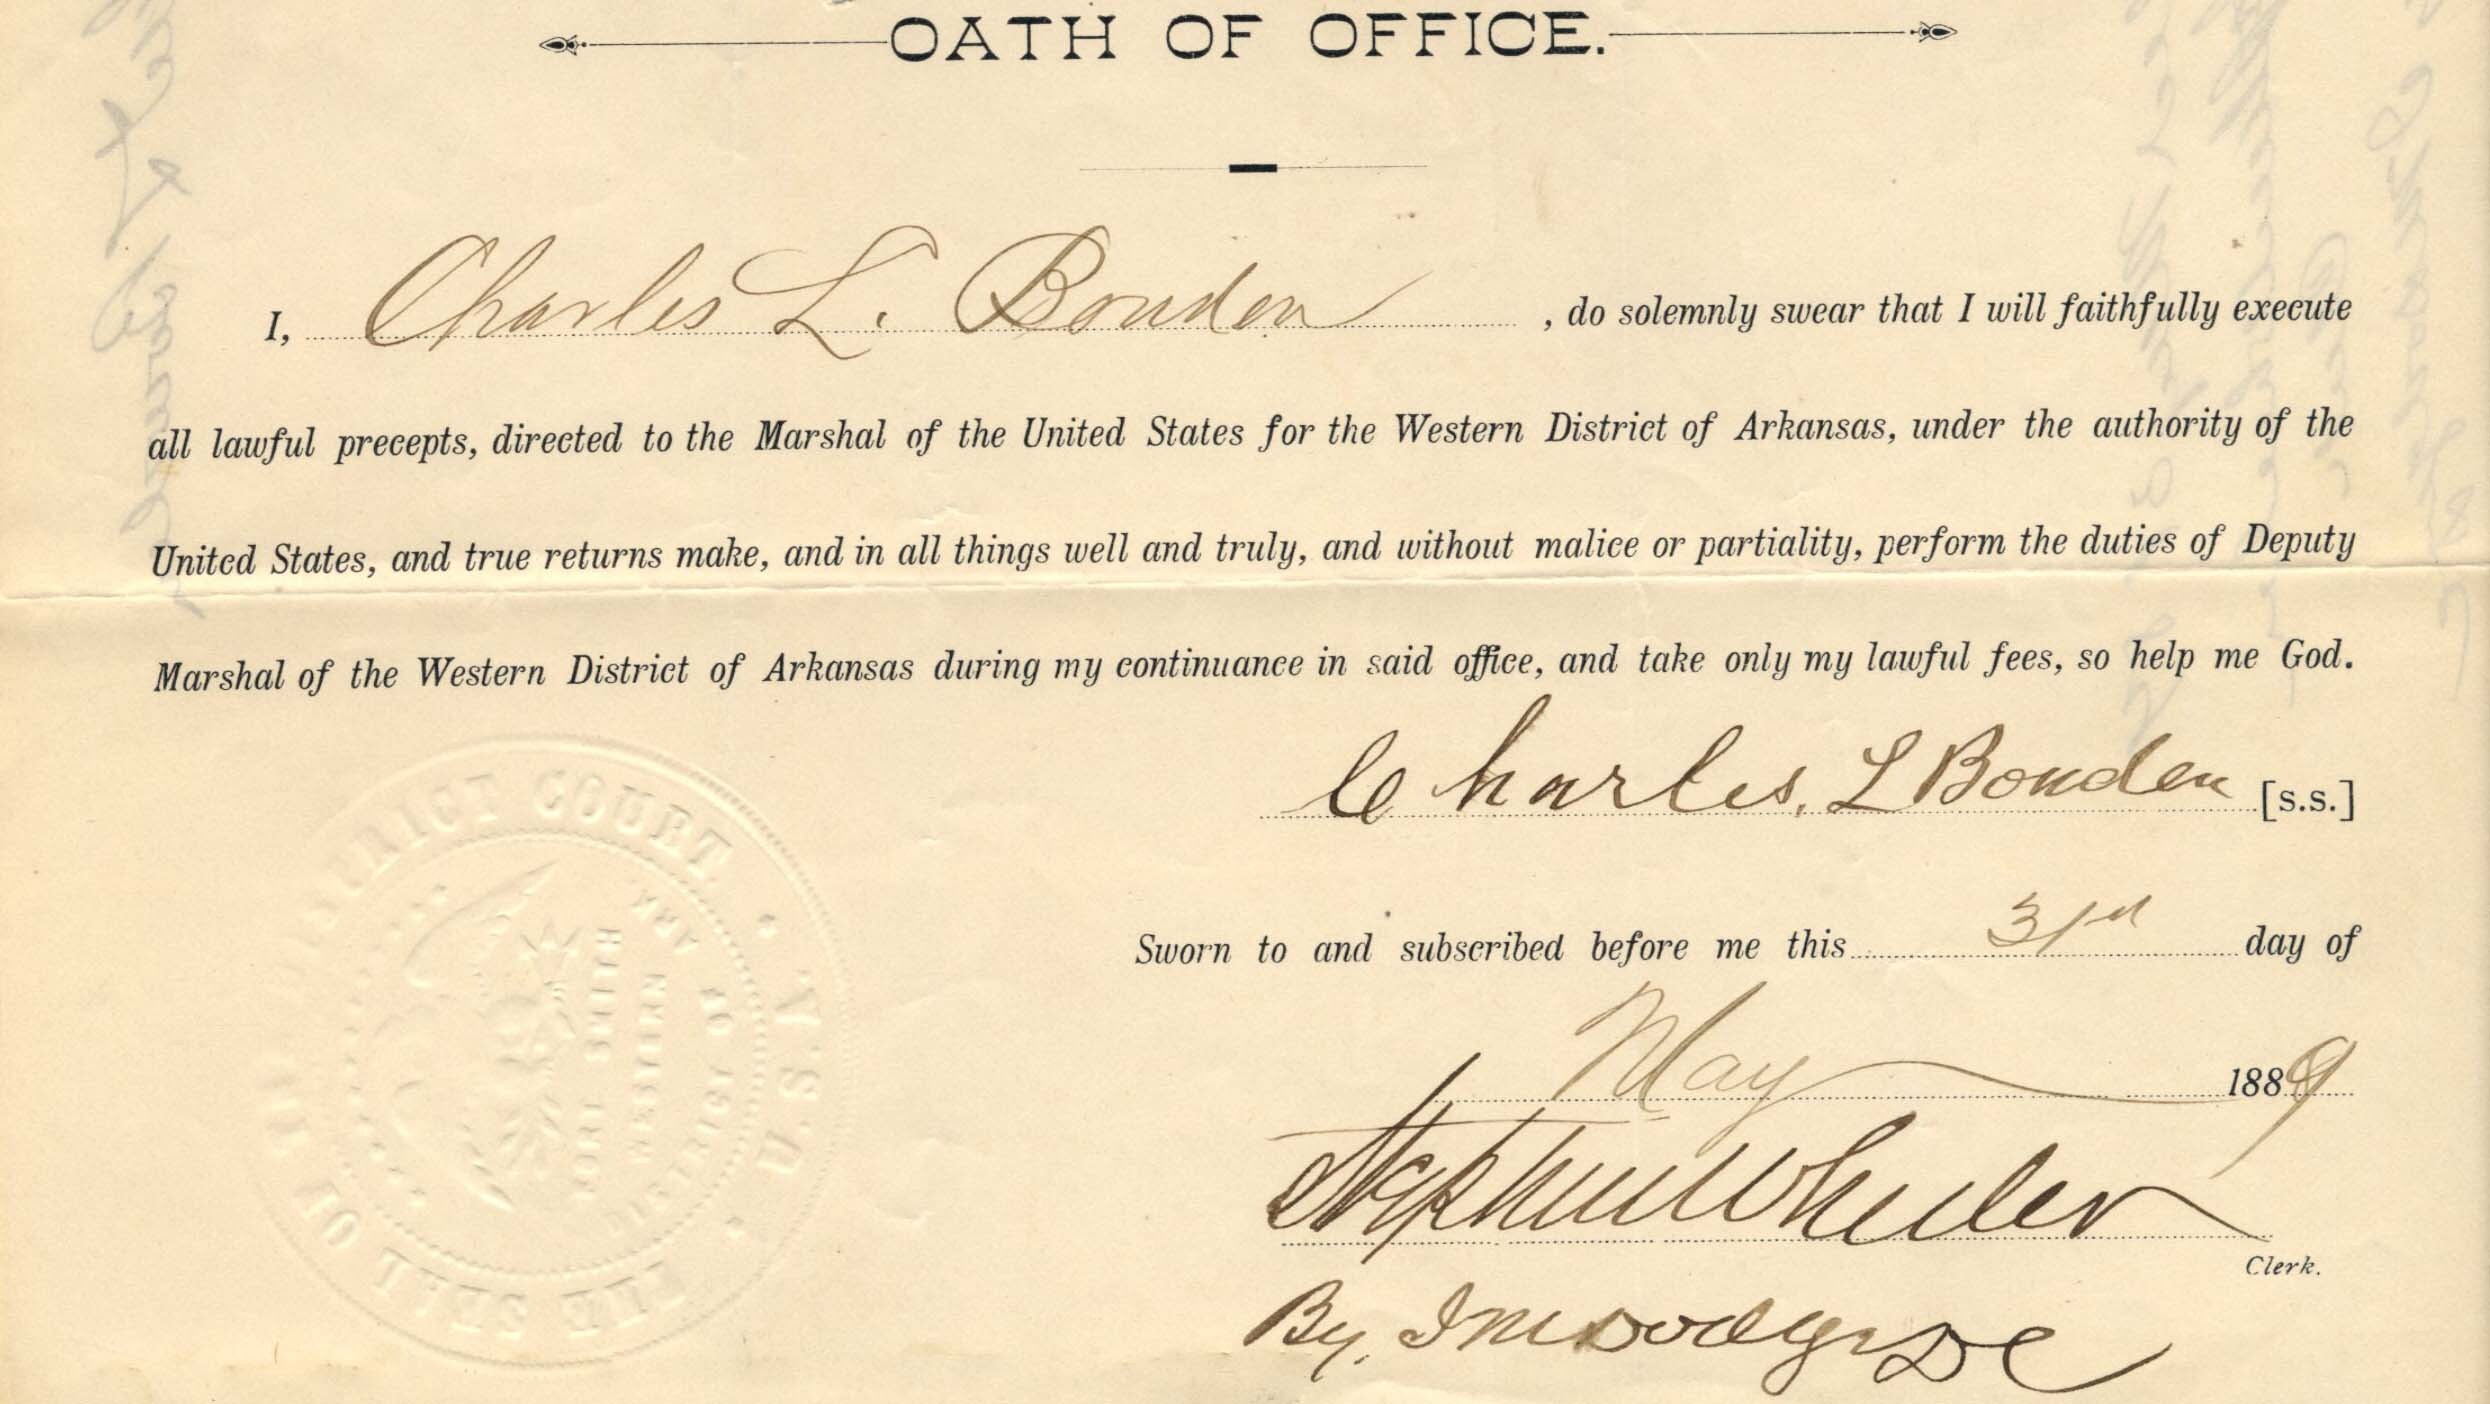 OATH OF OFFICE.
I, Charles L. Bouden, do solemnly swear that I will faithfully execute
all lawful precepts, directed to the Marshal of the United States for the Western District of Arkansas, under the authority of the
United States, and true returns make, and in all things well and truly, and without malice or partiality, perform the duties of Deputy
Marshal of the Western District of Arkansas during my continuance in said office, and take only my lawful fees, so help me God.
Charles. L Bouden [S.S.]
Sworn to and subscribed before me this 31st day of
May 1889
Stephen Wheeler
Clerk.
By, I M Dodge DC
THE SEAL OF DISTRICT COURT. U.S.A.